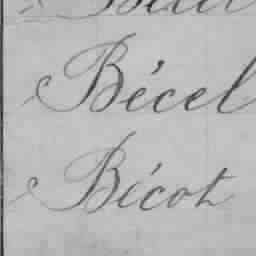 Bécel
Bicot